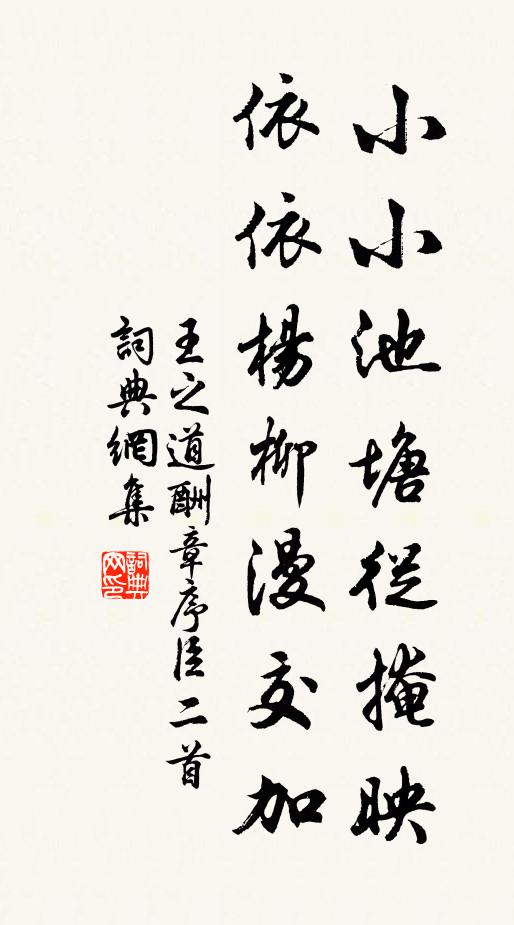 小小池塘從掩映
依依楊柳漫交加
王之道酬章序臣二首
詞典網集
詞典網印